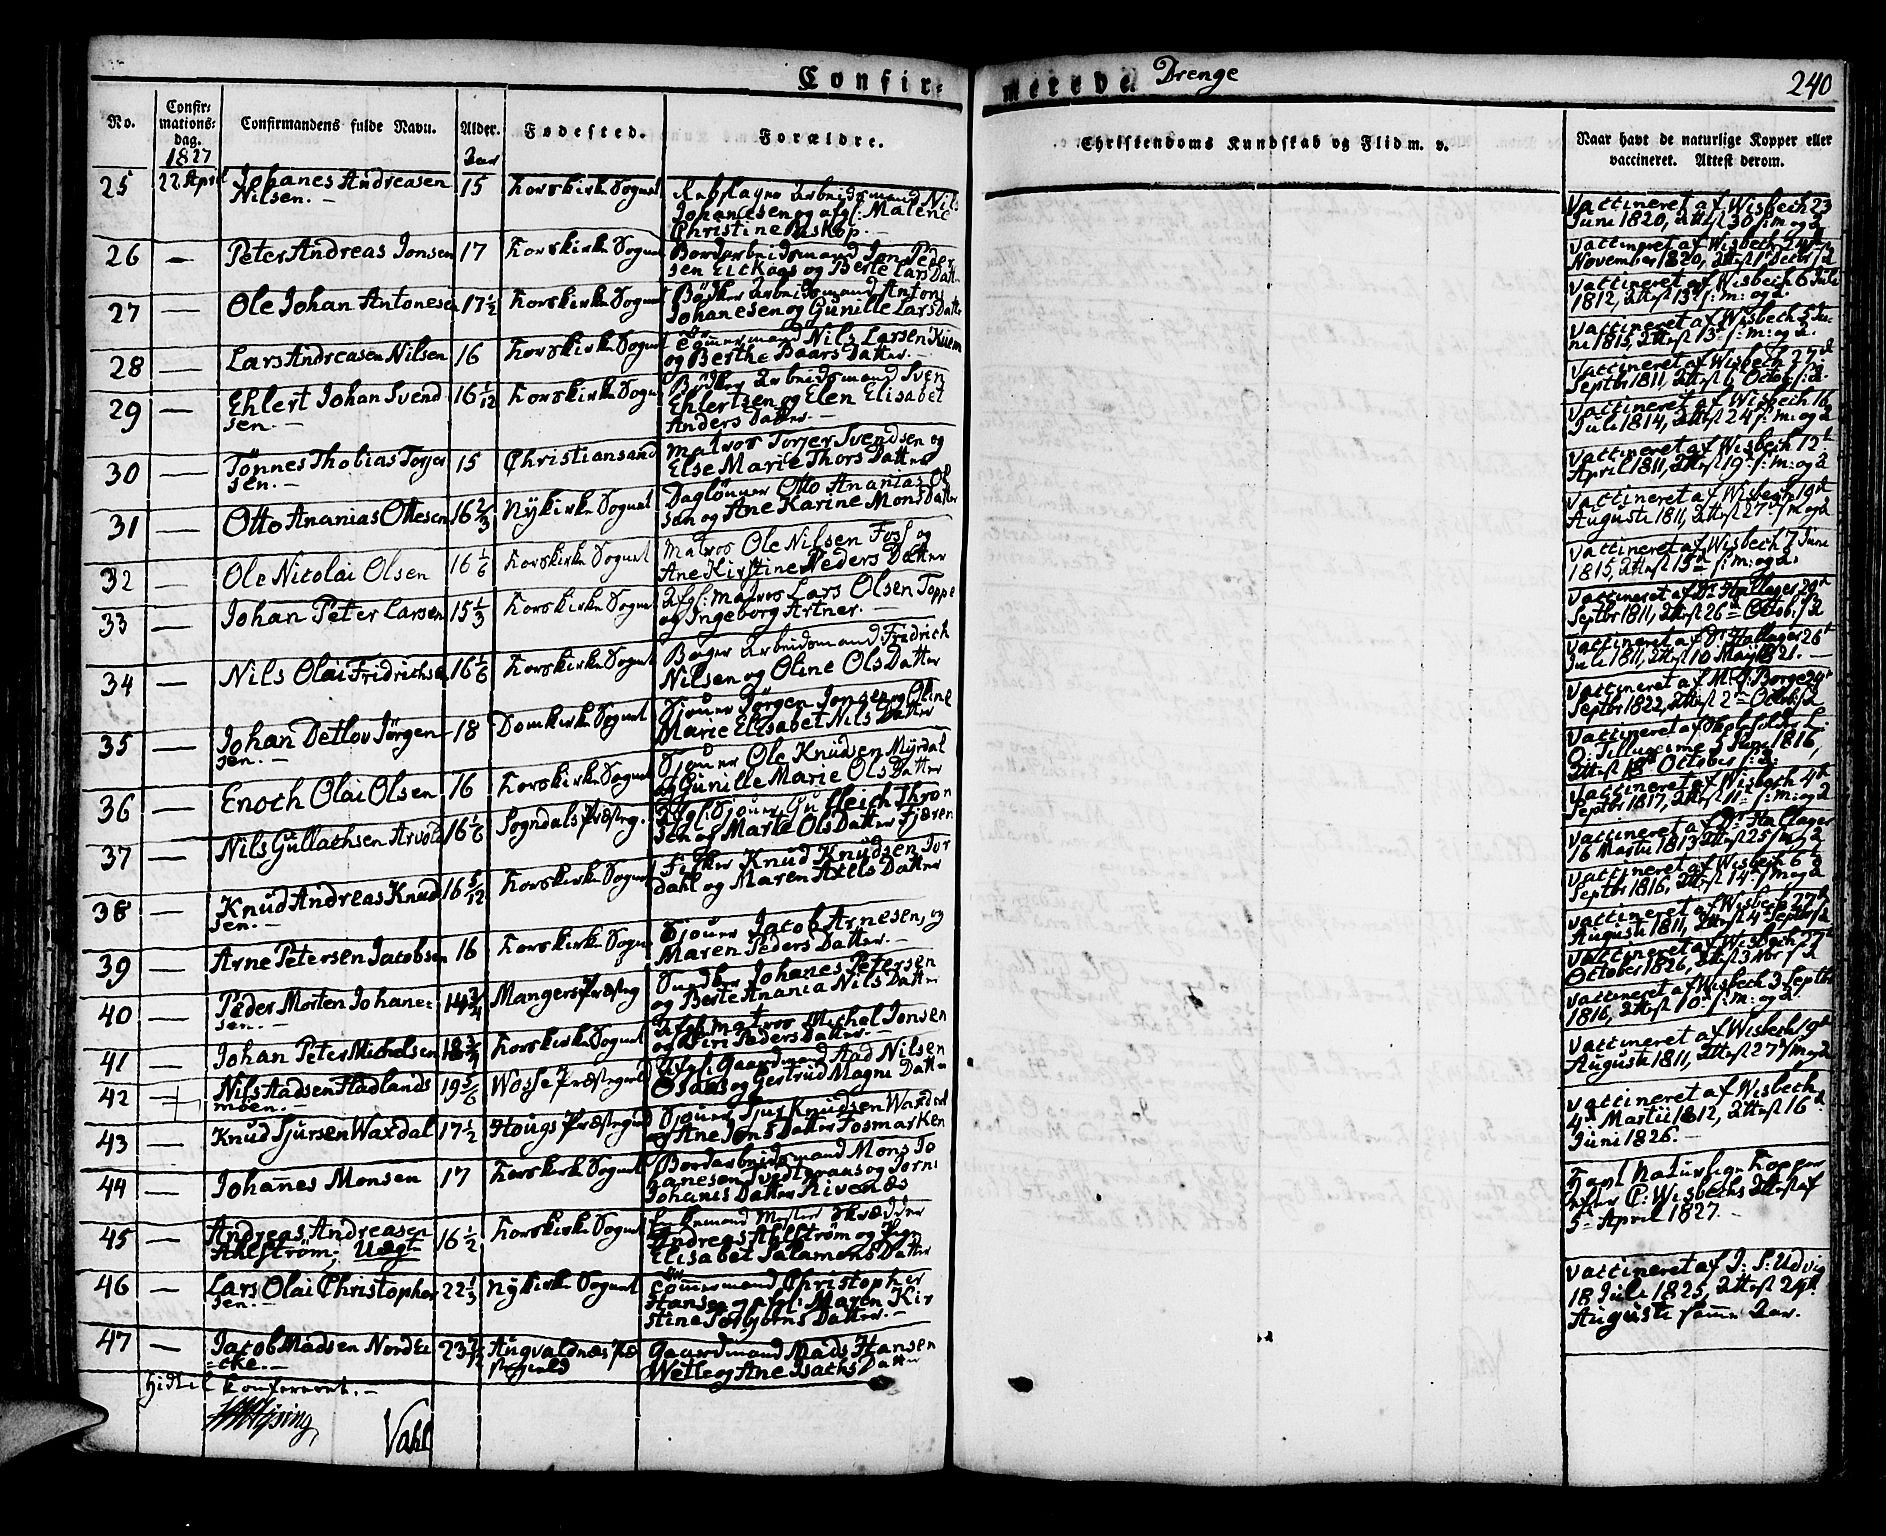 Confir=
merede Drenge
240
No.
Confir=
mations=
dag.
1827
Confirmandens fulde Navn.
Alder.
Aar
Fødested.
Forældre.
Christendoms Kundskab og Flid m. v.
Naar havt de naturlige Kopper eller
vaccineret. Attest derom.
25 22 April Johanes Andreasen 15 Korskirke Sogn
Nilsen.-
Arbeidsmand Nils
Johanesen og afgl: Malene
Christine Biskop.-
Vattineret af Wisbech 23
Juni 1820, Attest 30 s: m: og A
26 — Peter Andreas Jonsen 17 Korskirke Sogn
Bordarbeidsmand Jon Peder
sen og Berte Lars Datter
Vattineret af Wisbech 24
November 1820, Attest 1 Decbr s: A
27 — Ole Johan Antonesen 17 1/2 Korskirke Sogn
Bödker Arbeidsmand Anton
Johanesen og Gunille Lars Datter
Vattineret af Wisbech 6 Juli
1812, Attest 13 s: m: og A.
28 — Lars Andreasen Nilsen 16 Korskirke Sogn
Tömmermand Nils Larsen
og Berthe Baars Datter.-
Vattineret af Wisbech 5 Ju=
ni 1815, Attest 13 s: m: og A.
29 — Ehlert Johan Svend 16 1/12 Korskirke Sogn
sen.-
Bödker Arbeidsmand Sven
Ehlertsen og Elen Elisabet
Anders Datter.-
Vattineret af Wisbech 27d
Septbr 1811, Attest 6 Octob: s: A.
30 — Tönnes Thobias Torjer 15 Christiansand
sen.-
Matros Torjer Svendsen og
Else Marie Thors Datter
Vattineret af Wisbech 16
Juli 1814, Attest 24 s: m: og A
31 — Otto Ananias Ottesen 16 2/3 Nykirke Sogn
Daglönner Otto Ananias Ol
sen og Ane Karine Mons Datter
Vattineret af Wisbech 12
April 1811, Attest 19 s: m: og A
32 — Ole Nicolai Olsen 16 1/6 Korskirke Sogn
Matros Ole Nilsen Foss og
Ane Kirstine Peders Datter
Vattineret af Wisbech 19d
Augusti 1811, Attest 27 s: m: og A
33 — Johan Peter Larsen 15 1/3 Korskirke Sogn
Afgl: Matros Lars Olsen Toppe
og Ingeborg Artner.-
Vattineret af Wisbech 7 Juni
1815, Attest 15 s: m: og A.
34 — Nils Olai Fridrichsen 16 1/6 Korskirke Sogn
Borger Arbeidsmand Fridrich
Nilsen og Oline Ols Datter
Vattineret af Dr Hallager 20d
Septbr 1811, Attest 26 Octob: s: A
35 — Johan Detlov Jörgen 18 Domkirke Sogn
sen.-
Sjouer Jörgen Jonsen og Oline
Marie Elisabet Nils Datter
Vattineret af Dr Hallager 26d
Juli 1811, Attest 10 Maij 1821.-
36 — Enoch Olai Olsen 16 Korskirke Sogn
Sjouer Ole Knudsen Myrdal
og Gunille Marie Ols Datter
Vattineret af M. J. Borge 29d
Septbr 1822, Attest 2 Octob: s: A
37 — Nils Gullachsen Arvold 16 1/6 Sogndals Præsteg.
Afgl: Sjouer Gulleich Thron
sen og Marte Ols Datter Fjæren
Vattineret af Skoleholder
O: Tillugsme 3 Juni 1816,
Attest 18 October s: A:
38 — Knud Andreas Knud 16 5/12 Korskirke Sogn
sen.-
Fisker Knud Knudsen Jor
dahl og Maren Axels Datter
Vattineret af Wisbech 4d
Septbr 1817, Attest 11 s: m: og A
39 — Arne Petersen Jacobsen 16 Korskirke Sogn
Sjouer Jacob Arnesen, og
Maren Peders Datter.-
Vattineret af Dr Hallager
16 Martii 1813, Attest 25 s: m: A
40 — Peder Morten Johane= 14 3/4 Mangers Præsteg
sen.-
Johanes Petersen
og Berte Anania Nils Datter
Vattineret af Wisbech 6
Septbr 1816, Attest 14 s: m: og A
41 — Johan Peter Michelsen 18 3/4 Korskirke Sogn
Afgl: Matros Michel Jonsen
og Siri Peders Datter.-
Vattineret af Wisbech 27d
Augusti 1811, Attest 4 Septbr s: A
42 Nils Aadsen Fladlands 19 5/6 Wosse Præstegield
moen.-
Afgl: Gaardmand Aad Nilsen
og Gertrud Magne Datter
Vattineret af Wisbech 27d
October 1826, Attest 3 Nbr s: A
43 — Knud Sjursen Waxdal 17 1/2 Hougs Præstegield
Sjouer Sjur Knudsen Waxdal
og Ane Jons Datter Fosmarken
Vattineret af Wisbech 3 Septbr
1816, Attest 10 s: m: og A.
44 — Johannes Monsen 17 Korskirke Sogn
Bordarbeidsmand Mons Jo
hanesen og
Johanis Datter Rivenæs
Vattineret af Wisbech 19d
Augusti 1811, Attest 27 s: m: og A
45 — Andreas Andreasen 16 1/2 Korskirke Sogn
Ahlström; Uægt
Mester Skrædder
Andreas Ahlström og Pge
Elisabet Salamons Datter
Vattineret af Wisbech
4 Martii 1812, Attest 16d
Juni 1826.-
46 — Lars Olai Christopher 22 1/3 Nykirke Sogn
sen.-
Tömmermand Christopher
Hansen og afgl: Maren Kir
stine Torbjörns Datter.-
Havt Naturlige Kopper
efter C: Wisbechs Attest af
5 April 1827.-
47 — Jacob Madsen Norde 23 Augvaldnæs Præ
=cke.-
stegield
Gaardmand Mads Hansen
Wetle og Ane Isachs Datter
Vattineret af J: S: Udvig
18 Juli 1825, Attest 29d
Augusti samme Aar.
hidtil Konfereret.-
Vahl